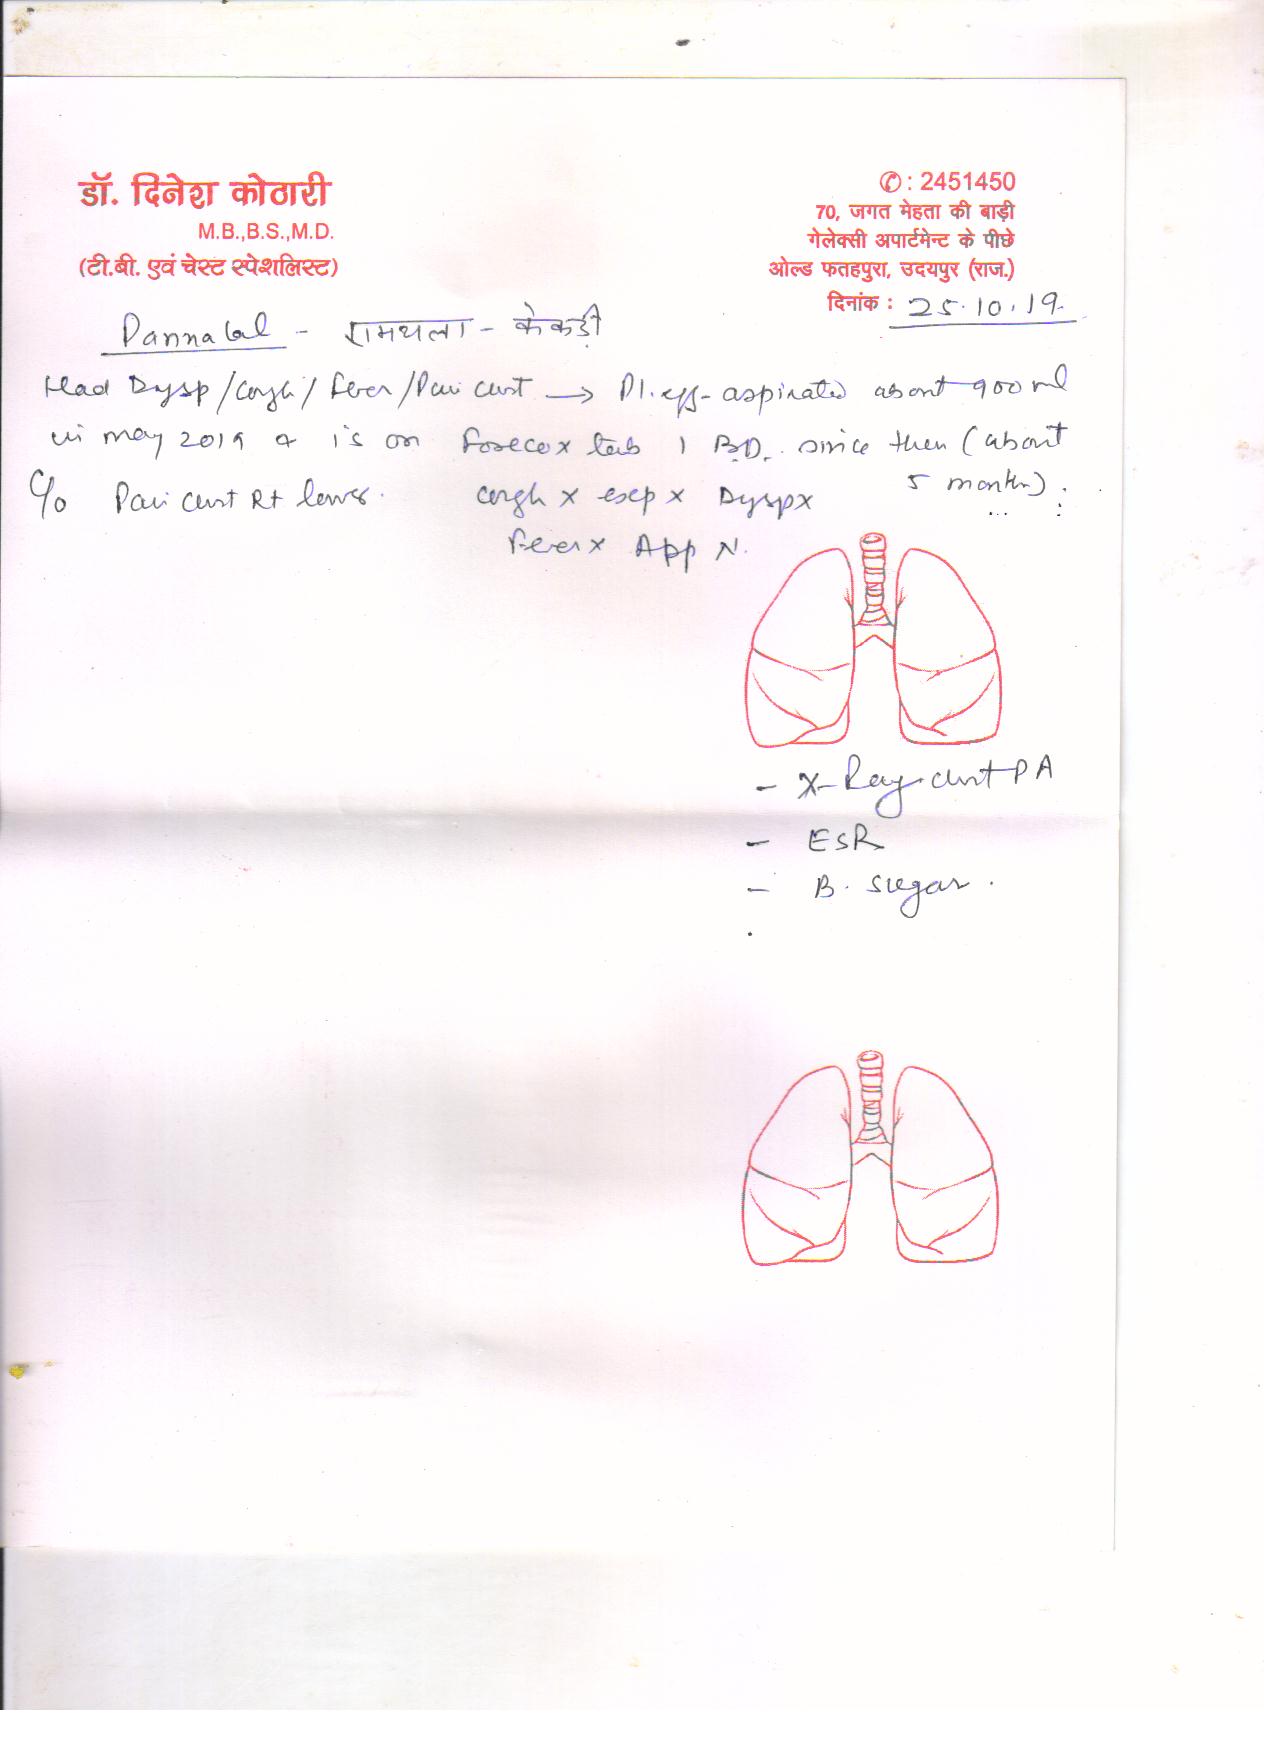 डॉ. दिनेश कोठारी
M.B.,B.S.,M.D.
(टी.बी. एवं चेस्ट स्पेशलिस्ट)
✆ : 2451450
70, जगत मेहता की बाड़ी
गेलेक्सी अपार्टमेन्ट के पीछे
ओल्ड फतहपुरा, उदयपुर (राज.)
दिनांक : 25.10.19
Pannalal - रामथला - केकड़ी
Had Dysp/Cough/Fever/Pain chest → Pl. eff- aspirated about 900 ml
in may 2019 & is on Forecox tab 1 BD. since then (about
5 months).
C/o Pain chest Rt lower. cough x exp x Dysp x
Fever x App N.
- X-Ray chest PA
- ESR
- B. sugar.